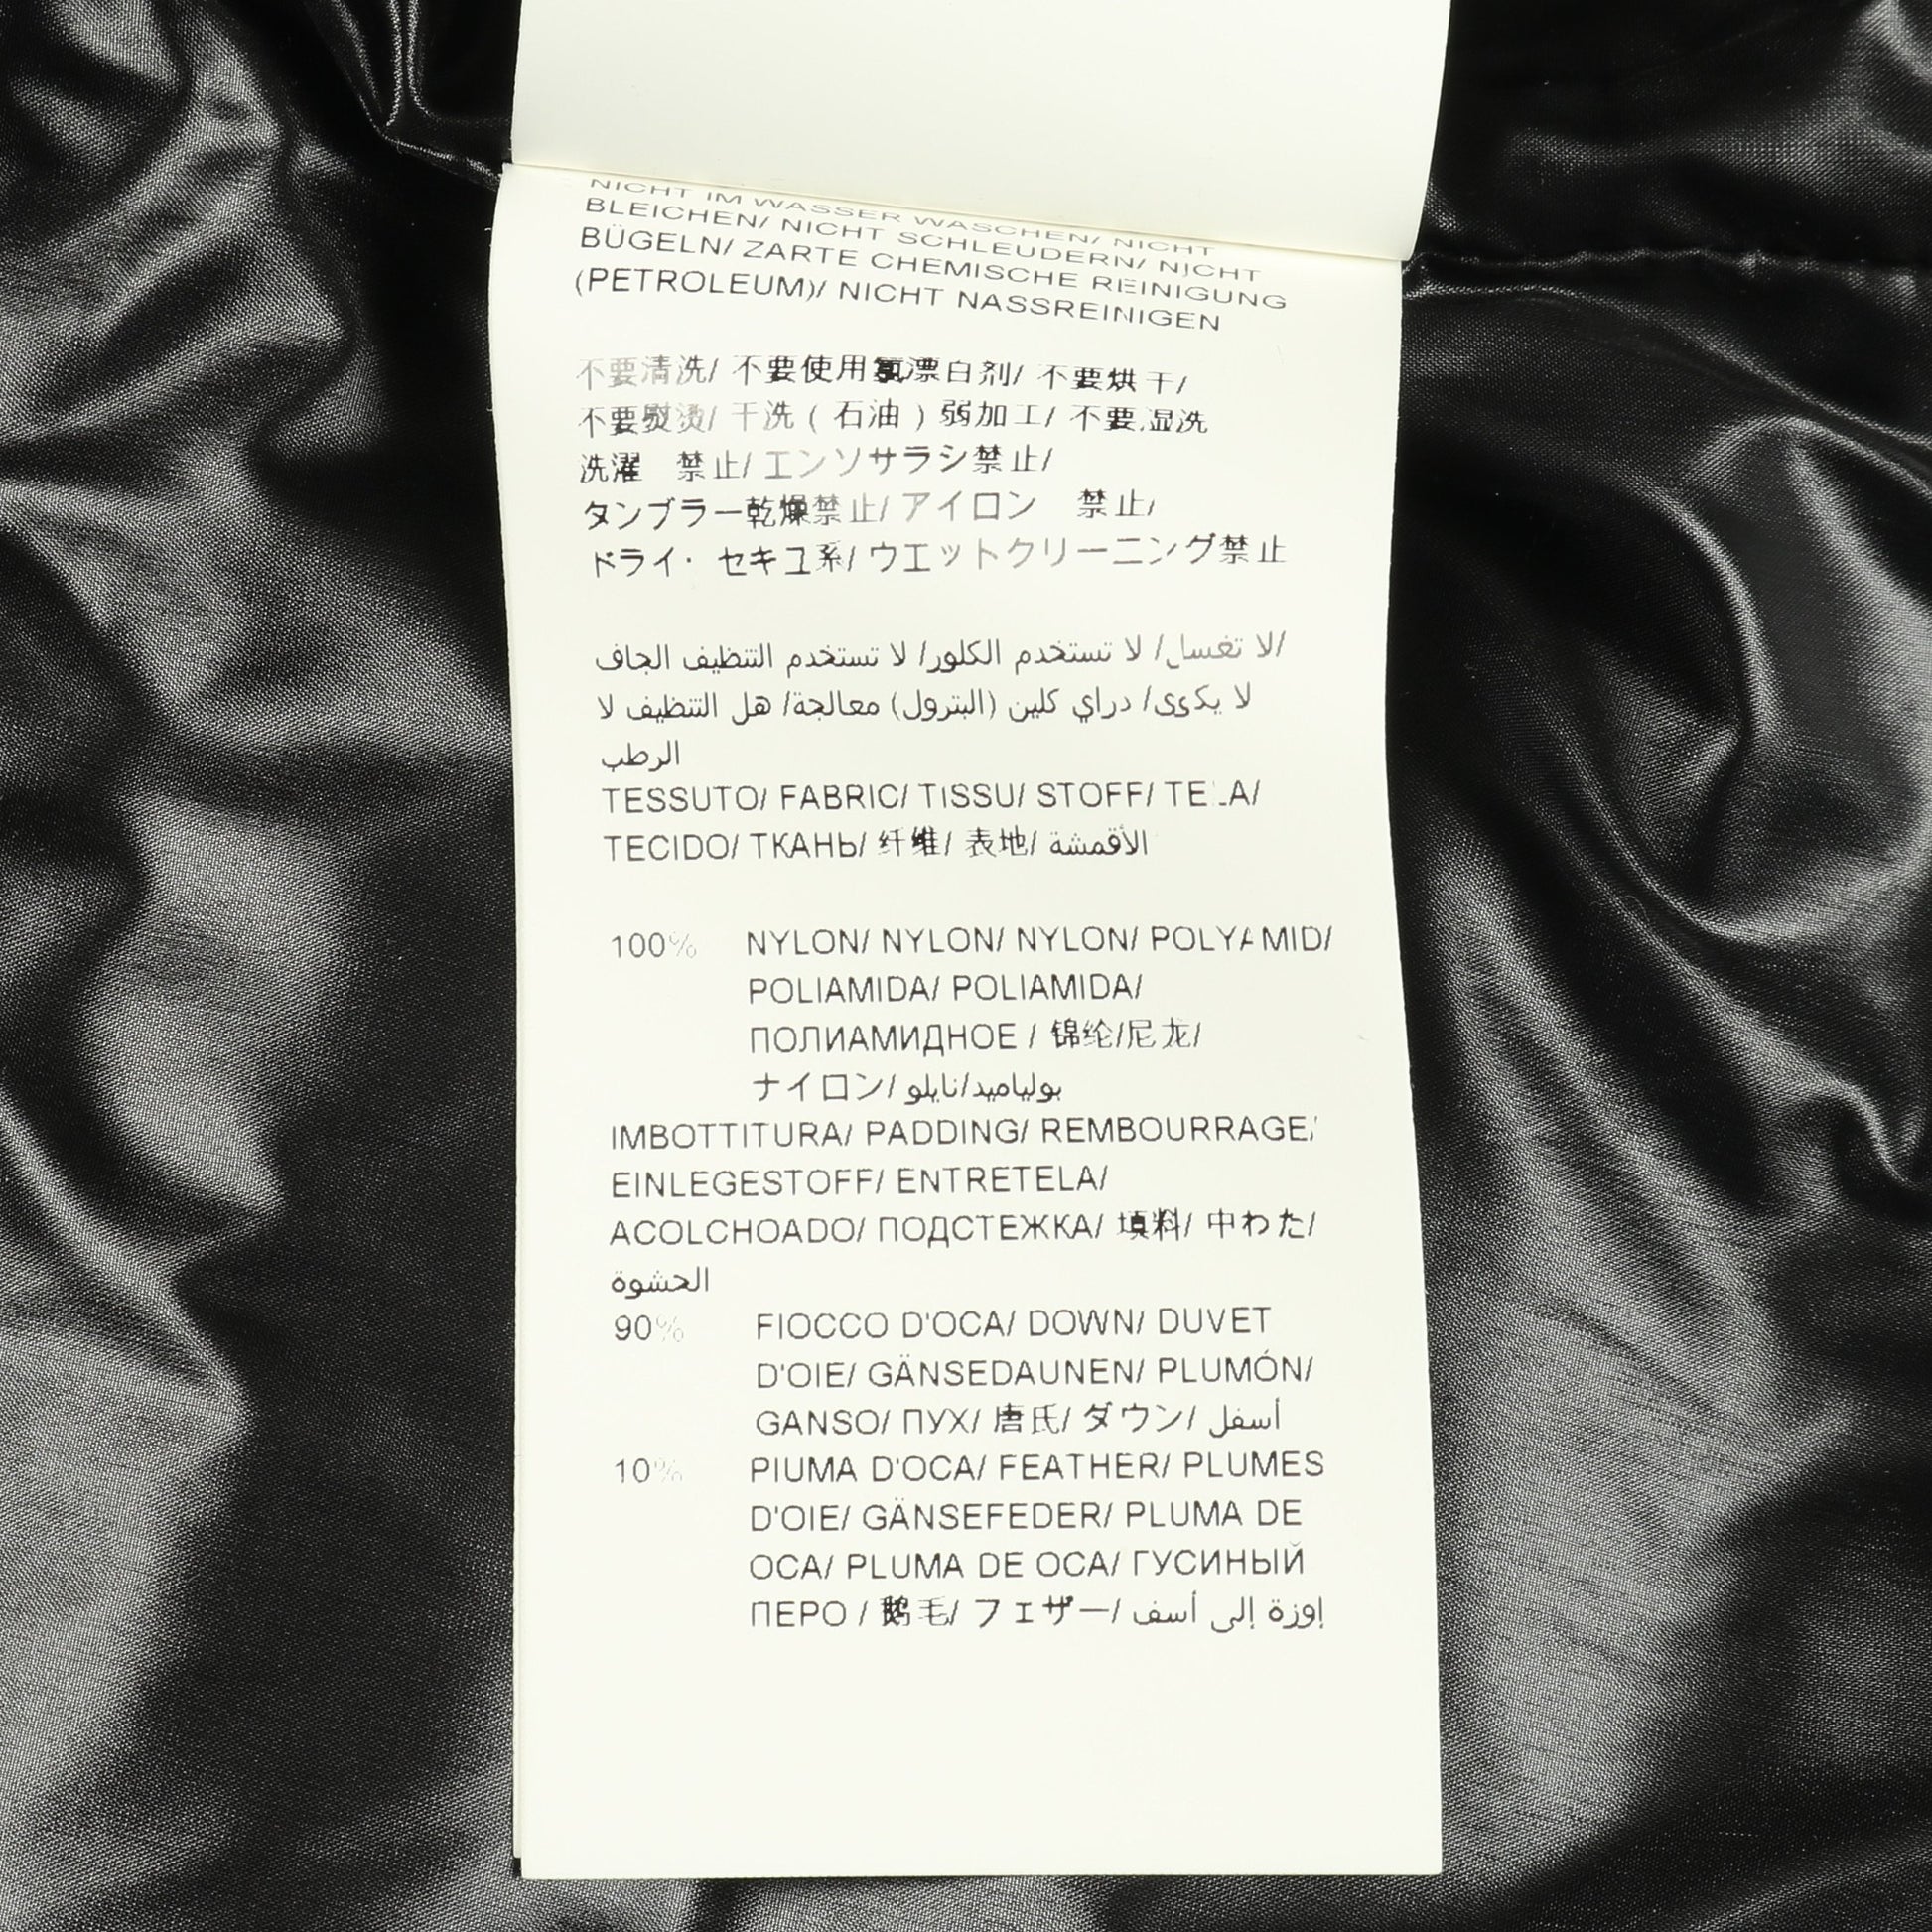 NICHT IM WASSER WASCHEN/ NICHT
BLEICHEN/ NICHT SCHLEUDERN/ NICHT
BÜGELN/ ZARTE CHEMISCHE REINIGUNG
(PETROLEUM)/ NICHT NASSREINIGEN
不要清洗/ 不要使用氯漂白剂/ 不要烘干/
不要熨烫/ 干洗 ( 石油 ) 弱加工/ 不要湿洗
洗濯　禁止/ エンソサラシ禁止/
タンブラー乾燥禁止/ アイロン　禁止/
ドライ・セキユ系/ ウエットクリーニング禁止
لا تغسل/ لا تستخدم الكلور/ لا تستخدم التنظيف الجاف/
لا يكوى/ دراي كلين (البترول) معالجة/ هل التنظيف لا
الرطب
TESSUTO/ FABRIC/ TISSU/ STOFF/ TELA/
TECIDO/ ТКАНЬ/ 纤维/ 表地/ الأقمشة
100% NYLON/ NYLON/ NYLON/ POLYAMID/
POLIAMIDA/ POLIAMIDA/
ПОЛИАМИДНОЕ / 锦纶/尼龙/
ナイロン/ بولياميد/نايلو
IMBOTTITURA/ PADDING/ REMBOURRAGE/
EINLEGESTOFF/ ENTRETELA/
ACOLCHOADO/ ПОДСТЕЖКА/ 填料/ 中わた/
الحشوة
90% FIOCCO D'OCA/ DOWN/ DUVET
D'OIE/ GÄNSEDAUNEN/ PLUMÓN/
GANSO/ ПУХ/ 唐氏/ ダウン/ أسفل
10% PIUMA D'OCA/ FEATHER/ PLUMES
D'OIE/ GÄNSEFEDER/ PLUMA DE
OCA/ PLUMA DE OCA/ ГУСИНЫЙ
ПЕРО / 鹅毛/ フェザー/ إوزة إلى أسف